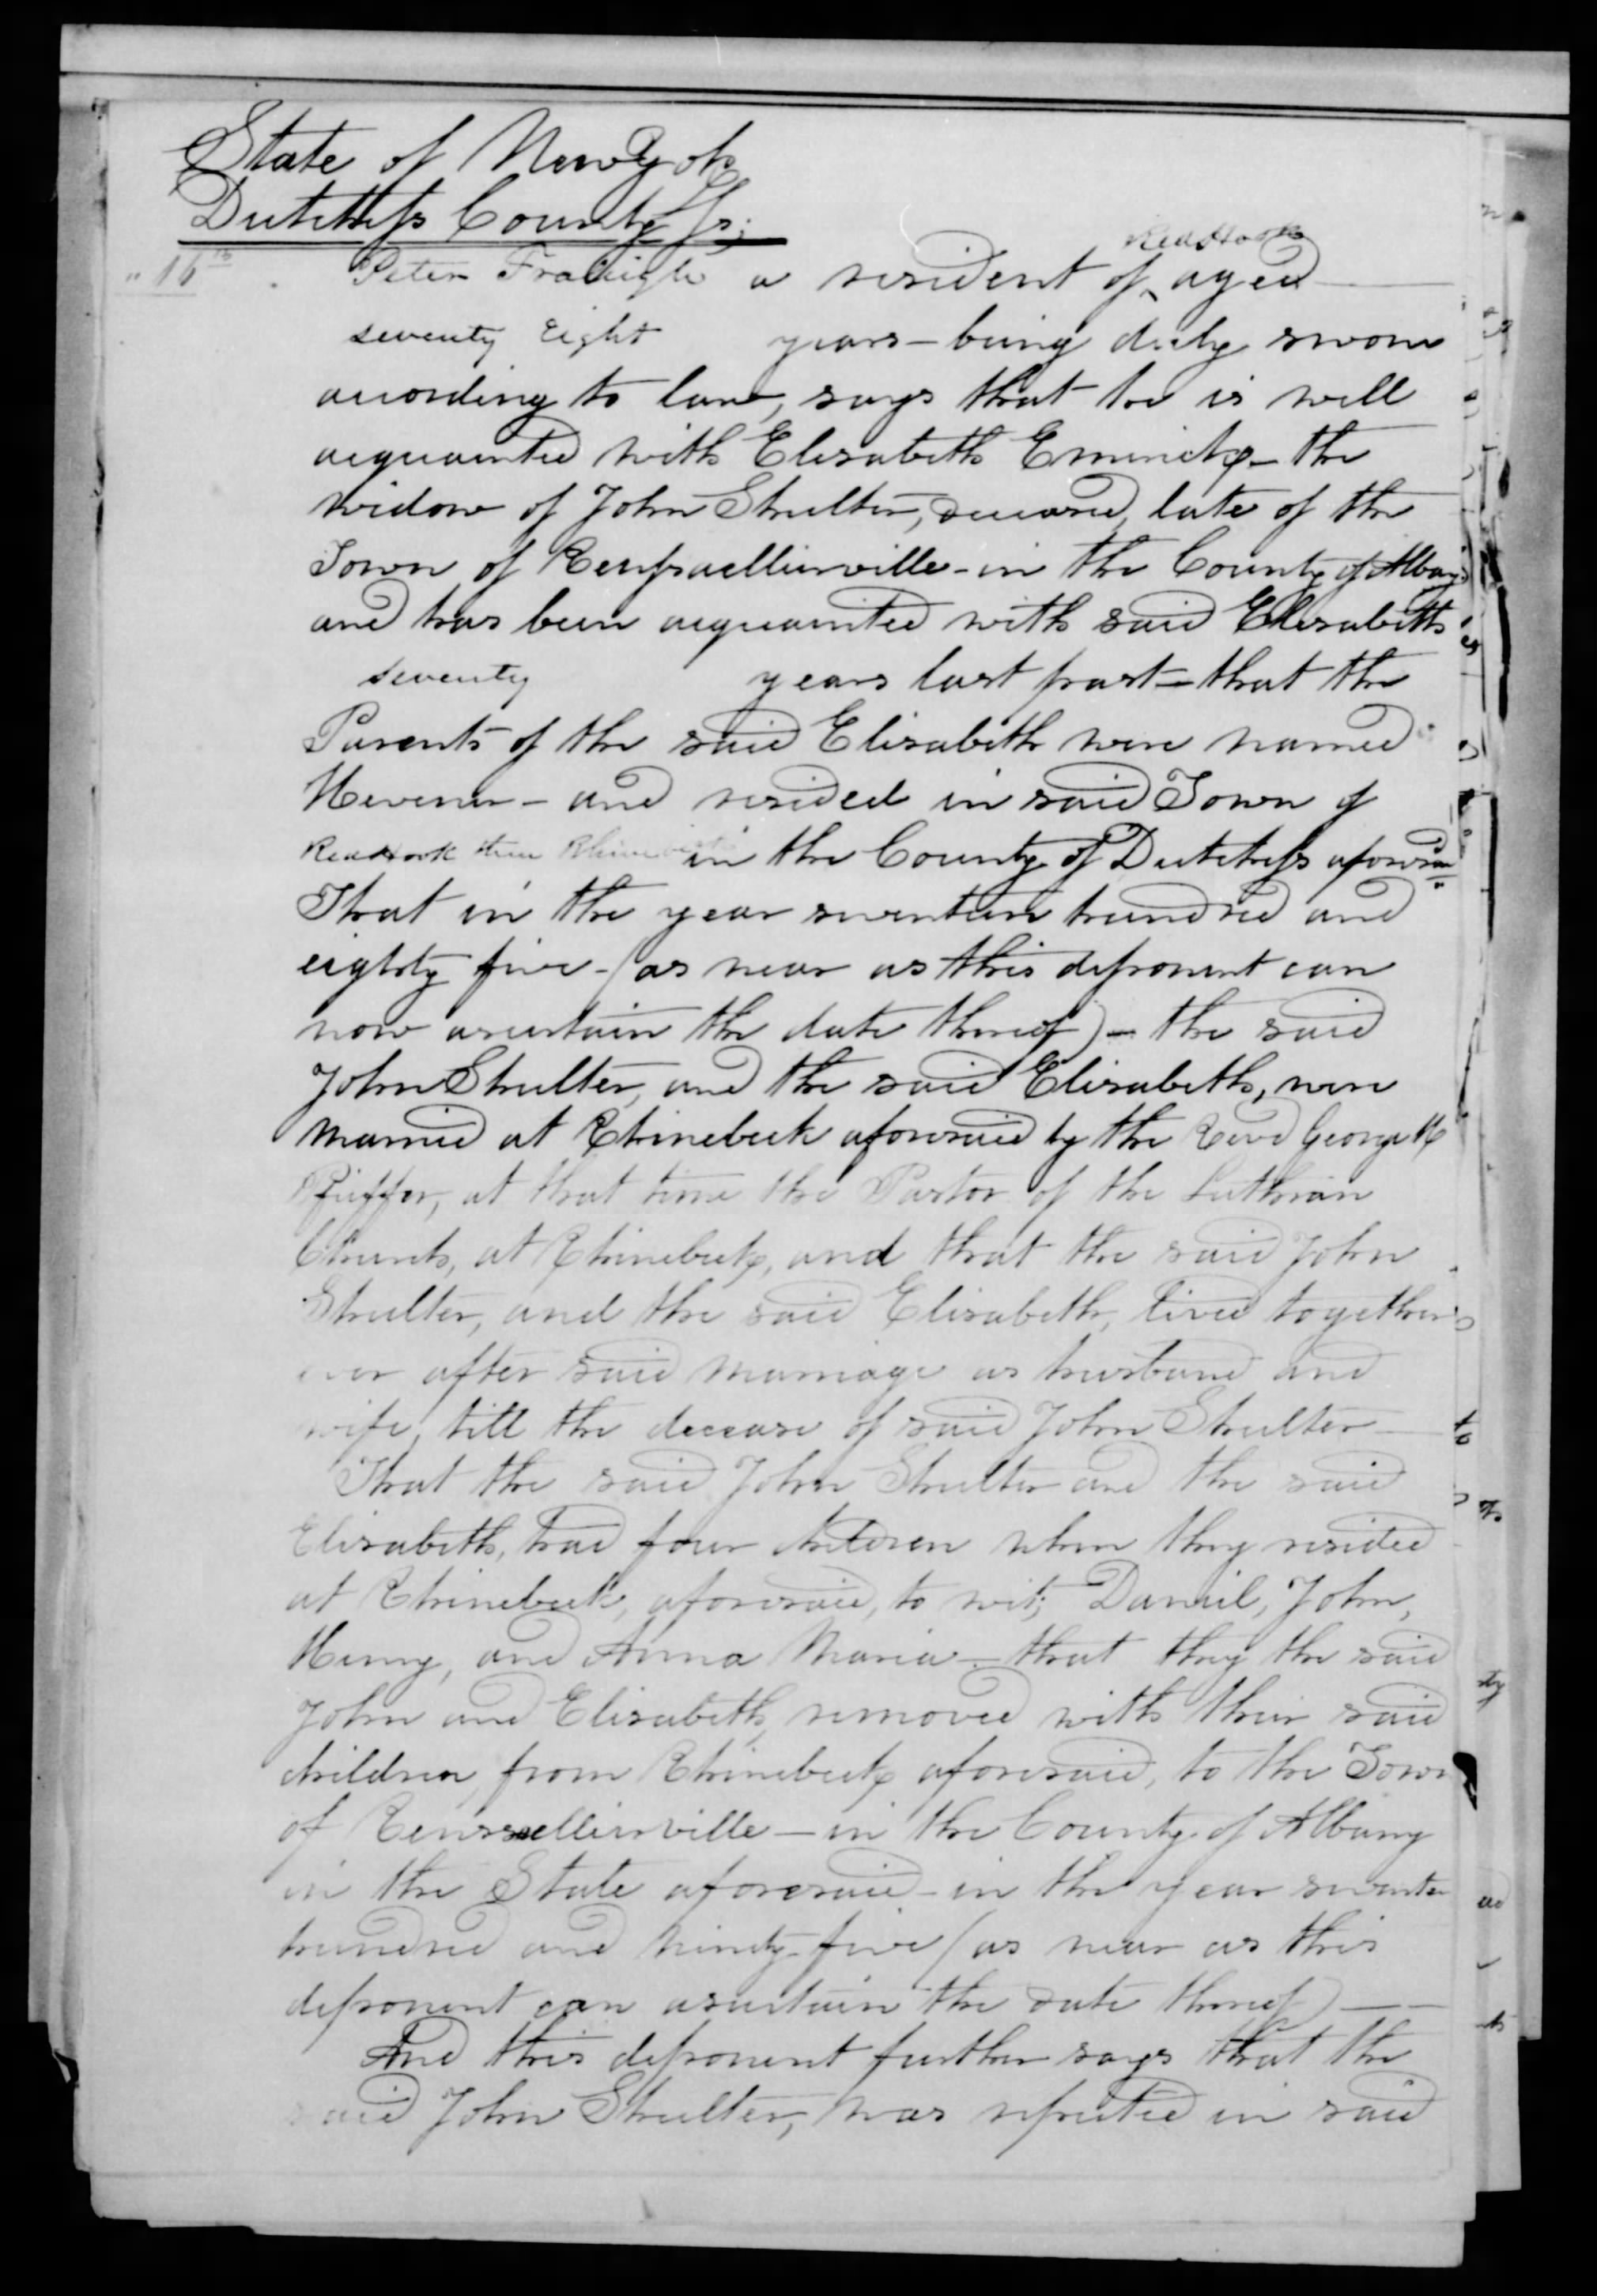 State of New York
Dutchess County Ss;
" 16th
Red Hook
Peter Fraleigh a resident of ‸ aged
seventy Eight years - being duly sworn
according to law, says that he is well
acquainted with Elisabeth Emerick - the
widow of John Shulter, deceased, late of the
Town of Rensselliersville - in the County of Albany
and has been acquainted with said Elisabeth
seventy years last past - that the
Parents of the said Elisabeth were named
Hevener - and resided in said Town of
Red Hook then Rhinebeck in the County of Dutchess aforesaid
That in the year seventeen hundred and
eighty five - (as near as this deponent can
now ascertain the date thereof) - the said
John Shulter, and the said Elisabeth, were
married at Rhinebeck aforesaid by the Revd George H
Pfeiffer, at that time the Pastor of the Lutheran
Church, at Rhinebeck, and that the said John
Shulter, and the said Elisabeth, lived together
ever after said marriage as husband and
wife, till the decease of said John Shulter
That the said John Shulter and the said
Elisabeth, had four children when they resided
at Rhinebeck, aforesaid, to wit; Daniel, John,
Henry, and Anna Maria - that they the said
John and Elisabeth, removed with their said
children, from Rhinebeck aforesaid, to the Town
of Rensselliersville - in the County of Albany
in the State aforesaid - in the year seventeen
hundred and ninety-five (as near as this
deponent can ascertain the date thereof)
And this deponent further says that the
said John Shulter, was reputed in said